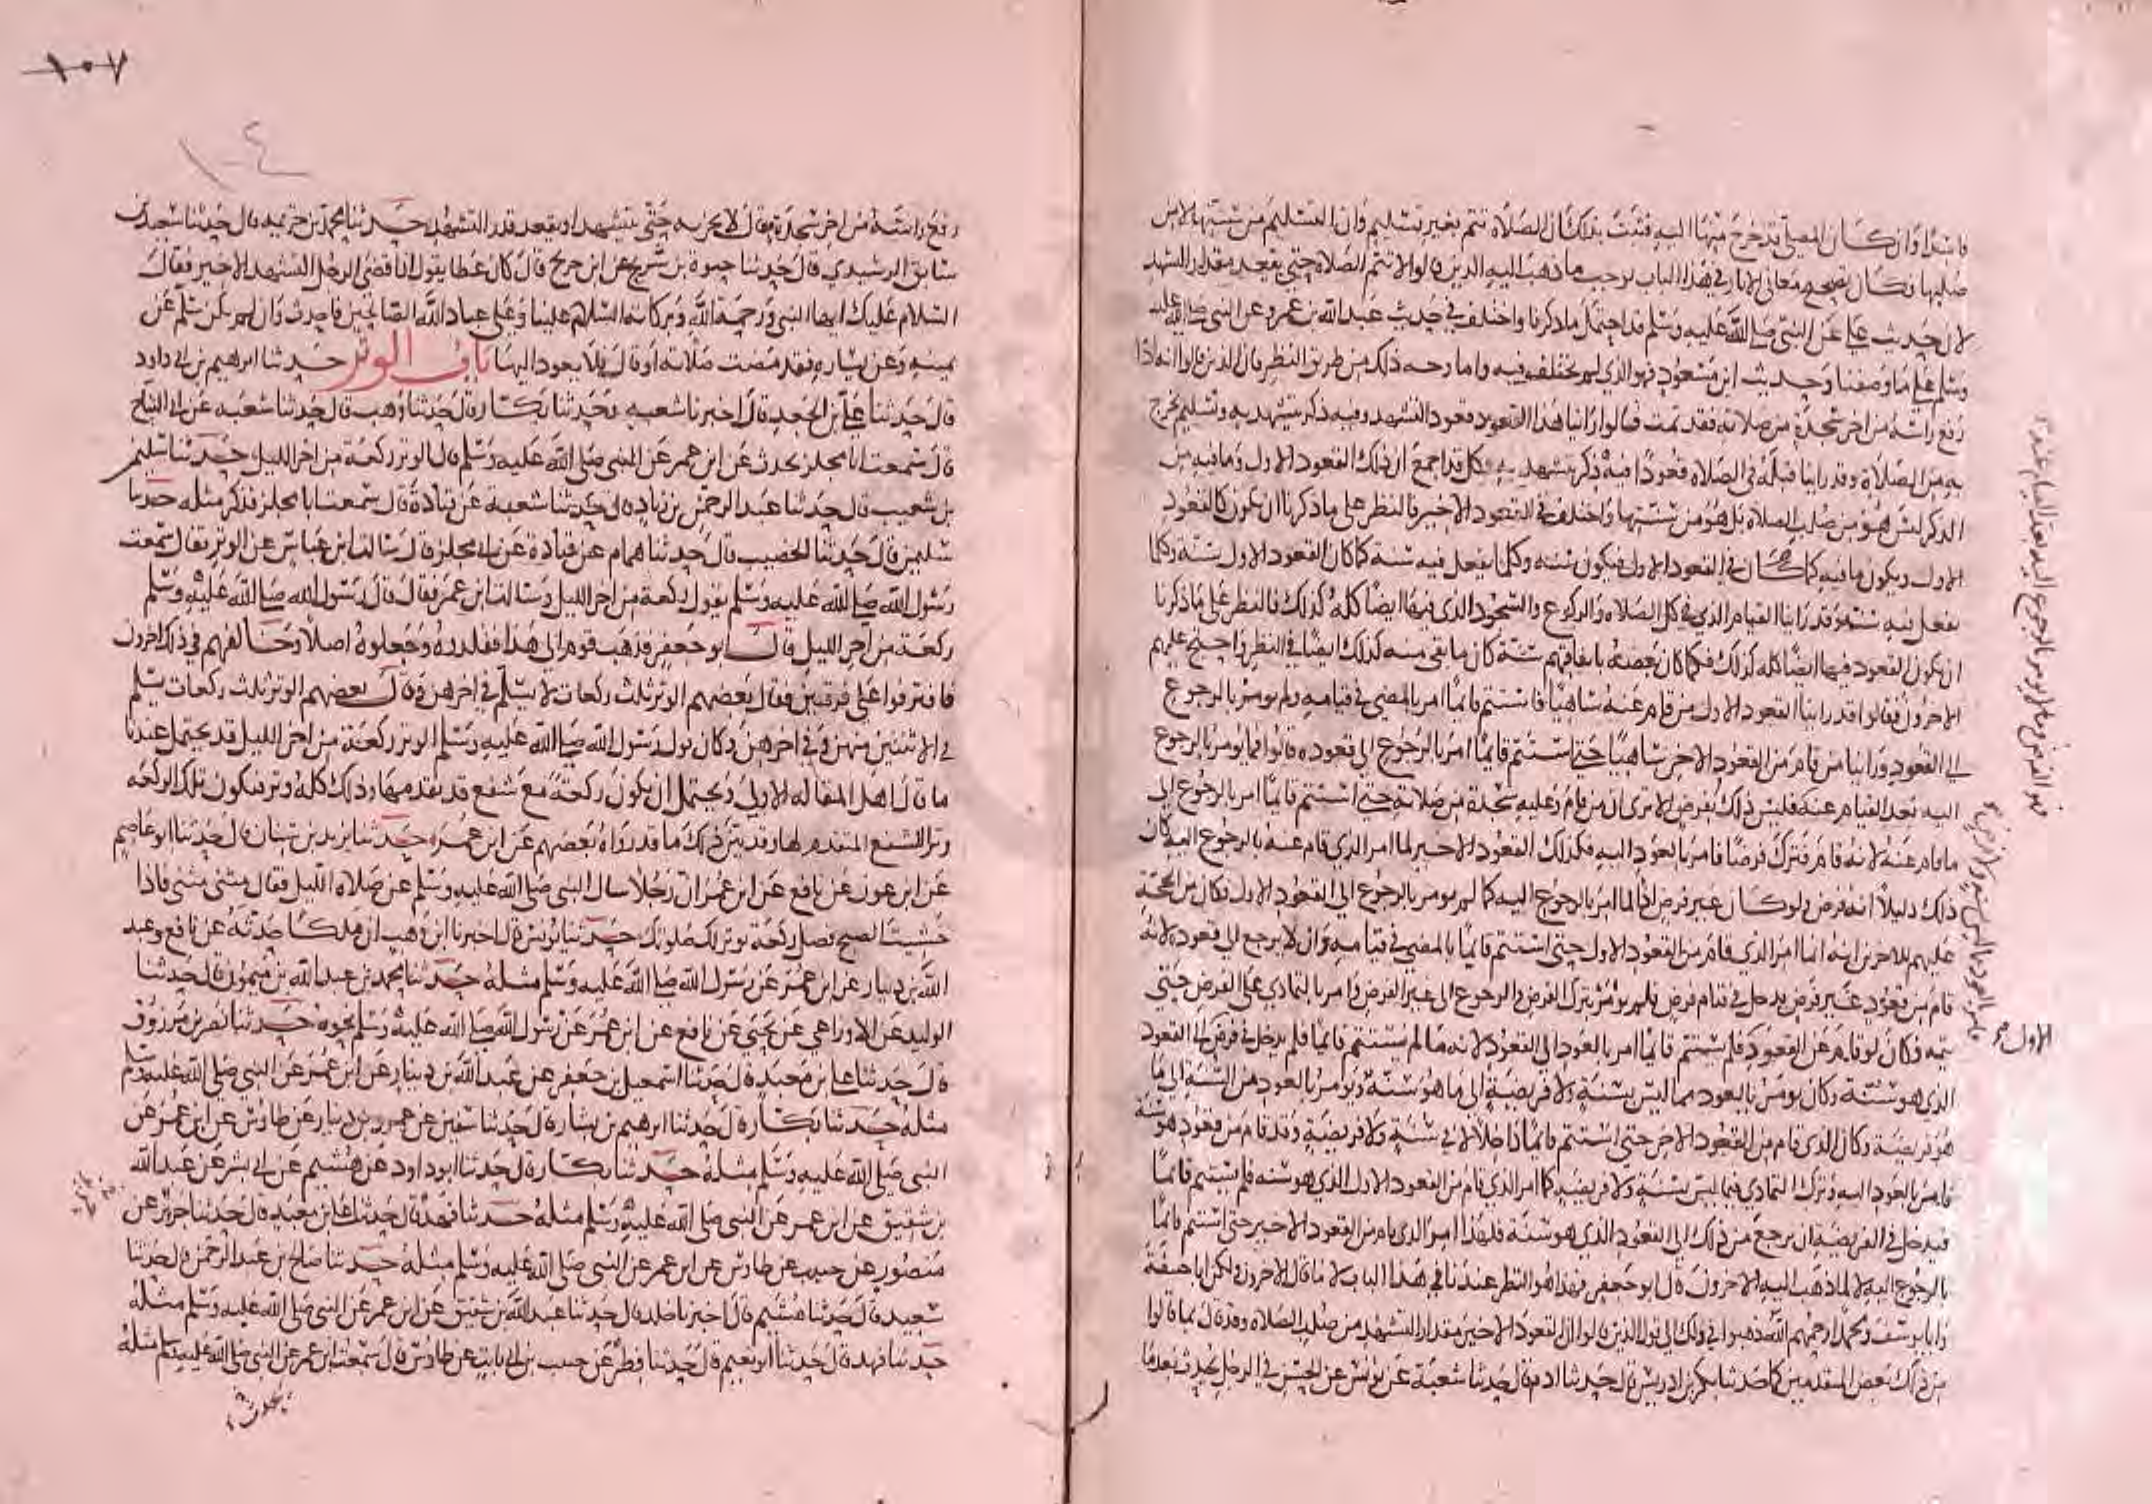 فاسدا وان كان المصلي قد خرج منها اليه فثبت بذلك ان الصلاة تتم بغير تسليم وان التسليم من سننها لا من
صلبها وكان تصحيح معاني الاثار في هذا الباب يوجب ما ذهب اليه الذين قالوا لا تتم الصلاة حتى يقعد مقدار التشهد
لان حديث علي عن النبي صلى الله عليه وسلم قد احتمل ما ذكرنا واختلف في حديث عبد الله بن عمرو عن النبي صلى الله عليه
وسلم على ما وصفنا وحديث ابن مسعود فهو الذي لم يختلف فيه واما وجه ذلك من طريق النظر فان الذين قالوا انه اذا
رفع راسه من اخر سجدة من صلاته فقد تمت قالوا راينا هذا القعود قعود التشهد وفيه ذكر يتشهد به وتسليم يخرج
به من الصلاة وقد راينا قبله في الصلاة قعودا فيه ذكر يتشهد به فكل قد اجمع ان ذلك القعود الاول وما فيه من
الذكر ليس هو من صلب الصلاة بل هو من سننها واختلف في القعود الاخير فالنظر على ما ذكرنا ان يكون كالقعود
الاول ويكون ما فيه كما في القعود الاول فيكون سنة وكلما يفعل فيه سنة كما كان القعود الاول سنة وكلما
يفعل فيه سنة وقد راينا القيام الذي في كل الصلاة والركوع والسجود الذي فيها ايضا كله كذلك فالنظر على ما ذكرنا
ان يكون القعود فيها ايضا كله كذلك فكما كان بعضه باتفاقهم سنة كان ما بقي منه كذلك ايضا في النظر واحتج عليهم
الاخرون فقالوا قد راينا القعود الاول من قام عنه ساهيا فاستتم قائما امر بالمضي في قيامه ولم يومر بالرجوع
الى القعود وراينا من قام من القعود الاخر ساهيا حتى استتم قائما امر بالرجوع الى قعوده قالوا فما يومر بالرجوع
اليه بعد القيام عنه فليس ذلك بفرض الا ترى ان من قام وعليه سجدة من صلاته حتى استتم قائما امر بالرجوع الى
ما قام عنه لانه قام فترك فرضا فامر بالعود اليه فكذلك القعود الاخير لما امر الذي قام عنه بالرجوع اليه كان
ذلك دليلا انه فرض ولو كان غير فرض اذا لما امر بالرجوع اليه كما لم يومر بالرجوع الى القعود الاول فكان من الحجة
عليهم للاخرين انه انما امر الذي قام من القعود الاول حتى استتم قائما بالمضي في قيامه وان لا يرجع الى قعوده لانه
قام من قعود غير فرض فدخل في قيام فرض فلم يومر بترك الفرض والرجوع الى غير الفرض وامر بالتمادي على الفرض حتى
يتمه فكان لو قام عن القعود فلم يستتم قائما امر بالعود الى القعود لانه ما لم يستتم قائما فلم يدخل في فرض
الذي هو سنة وكان يومر بالعود مما ليس بسنة ولا فريضة الى ما هو سنة ويومر بالعود من السنة الى ما
هو فريضة وكان الذي قام من القعود الاخر حتى استتم قائما داخلا لا في سنة ولا فريضة وقد قام من قعود هو سنة
فامر بالعود اليه وترك التمادي فيما ليس بسنة ولا فريضة كما امر الذي قام من القعود الاول الذي هو سنة فلم يستتم قائما
فيدخل في الفريضة ان يرجع من ذلك الى القعود الذي هو سنة فلهذا امر الذي قام من القعود الاخير حتى استتم قائما
بالرجوع اليه لا لما ذهب اليه الاخرون قال ابو جعفر فهذا هو النظر عندنا في هذا الباب لا ما قال الاخرون ولكن ابا حنيفة
وابا يوسف ومحمدا رحمهم الله ذهبوا في ذلك الى قول الذين قالوا ان القعود الاخير مقدار التشهد من صلب الصلاة وقد قال بما قالوا
من ذلك بعض المتقدمين كما حدثنا بكر بن ادريس قال حدثنا ادم قال حدثنا شعبة عن يونس عن الحسن في الرجل يحدث بعدما
الاول
١٠٧
١٠٤
رفع راسه من اخر سجدة فقال لا يجزيه حتى يتشهد او يقعد قدر التشهد حدثنا محمد بن خزيمة قال حدثنا سعيد بن
سابق الرشيدي قال حدثنا حيوة بن شريح عن ابن جريج قال كان عطا يقول اذا قضى الرجل التشهد الاخير فقال
السلام عليك ايها النبي ورحمة الله وبركاته السلام علينا وعلى عباد الله الصالحين فاحدث وان لم يكن سلم عن
يمينه وعن يساره فقد مضت صلاته او قال فلا يعود اليها باب الوتر حدثنا ابراهيم بن ابي داود
قال حدثنا علي بن الجعد قال اخبرنا شعبة وحدثنا بكار قال حدثنا وهب قال حدثنا شعبة عن ابي التياح
قال سمعت ابا مجلز يحدث عن ابن عمر عن النبي صلى الله عليه وسلم قال الوتر ركعة من اخر الليل حدثنا سليمن
بن شعيب قال حدثنا عبد الرحمن بن زياد قال حدثنا شعبة عن قتادة قال سمعت ابا مجلز فذكر مثله حدثنا
سليمن قال حدثنا الخصيب قال حدثنا همام عن قتادة عن ابي مجلز قال سالت ابن عباس عن الوتر فقال سمعت
رسول الله صلى الله عليه وسلم يقول ركعة من اخر الليل وسالت ابن عمر فقال قال رسول الله صلى الله عليه وسلم
ركعة من اخر الليل قال ابو جعفر فذهب قوم الى هذا فقلدوه وجعلوه اصلا وخالفهم في ذلك اخرون
فافترقوا على فرقتين فقال بعضهم الوتر ثلث ركعات لا يسلم الا في اخرهن وقال بعضهم الوتر ثلث ركعات يسلم
في الاثنتين منهن وفي اخرهن وكان قول رسول الله صلى الله عليه وسلم الوتر ركعة من اخر الليل قد يحتمل عندنا
ما قال اهل المقالة الاولى ويحتمل ان يكون ركعة مع شفع قد تقدمها وذلك كله وتر فيكون تلك الركعة
وتر الشفع المتقدم لها وقد بين ذلك ما قد رواه بعضهم عن ابن عمر حدثنا يزيد بن سنان قال حدثنا ابو عاصم
عن ابن عون عن نافع عن ابن عمر ان رجلا سال النبي صلى الله عليه وسلم عن صلاة الليل فقال مثنى مثنى فاذا
خشيت الصبح فصل ركعة توتر لك صلوتك حدثنا يونس قال اخبرنا ابن وهب ان ملكا حدثه عن نافع وعبد
الله بن دينار عن ابن عمر عن رسول الله صلى الله عليه وسلم مثله حدثنا محمد بن عبد الله بن ميمون قال حدثنا
الوليد عن الاوزاعي عن يحيى عن نافع عن ابن عمر عن رسول الله صلى الله عليه وسلم نحوه حدثنا نصر بن مرزوق
قال حدثنا علي بن معبد قال حدثنا اسمعيل بن جعفر عن عبد الله بن دينار عن ابن عمر عن النبي صلى الله عليه وسلم
مثله حدثنا بكار قال حدثنا ابرهيم بن بشار قال حدثنا سفين عن عمرو بن دينار عن طاوس عن ابن عمر عن
النبي صلى الله عليه وسلم مثله حدثنا بكار قال حدثنا ابو داود عن هشيم عن ابي بشر عن عبد الله
بن شقيق عن ابن عمر عن النبي صلى الله عليه وسلم مثله حدثنا فهد قال حدثنا علي بن معبد قال حدثنا جرير عن
منصور عن حبيب عن طاوس عن ابن عمر عن النبي صلى الله عليه وسلم مثله حدثنا صالح بن عبد الرحمن قال حدثنا
سعيد قال حدثنا هشيم قال اخبرنا خالد قال حدثنا عبد الله بن شقيق عن ابن عمر عن النبي صلى الله عليه وسلم مثله
حدثنا فهد قال حدثنا ابو نعيم قال حدثنا فطر عن حبيب بن ابي ثابت عن طاوس قال سمعت ابن عمر عن النبي صلى الله عليه وسلم مثله